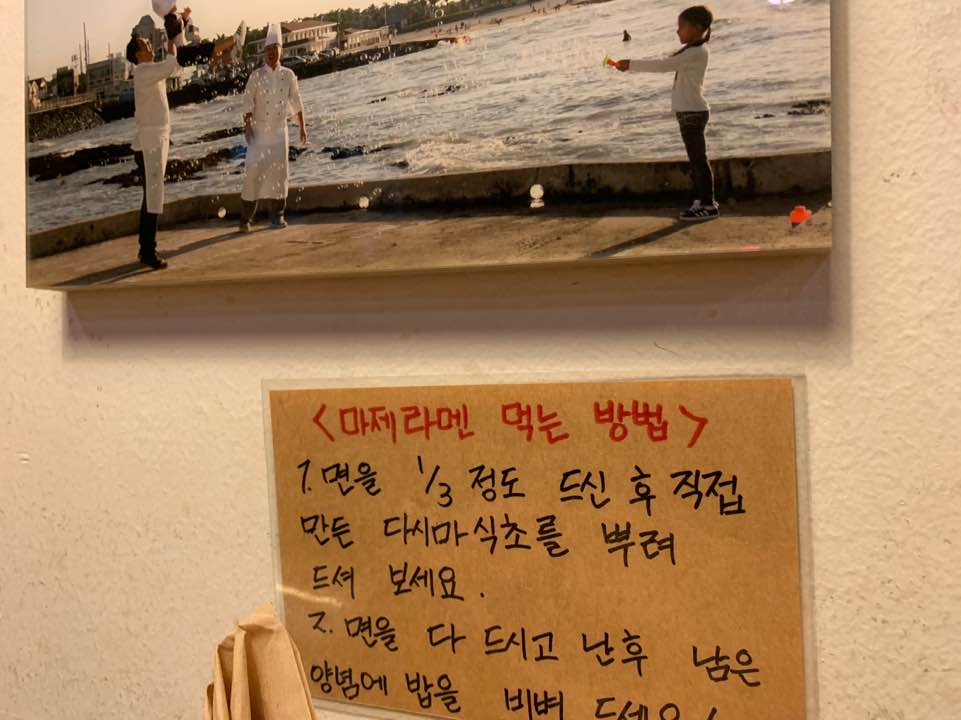 <마제라멘 먹는 방법>
1. 면을 1/3 정도 드신 후 직접
만든 다시마식초를 뿌려
드셔 보세요.
2. 면을 다 드시고 난후 남은
양념에 밥을 비벼 드세요!